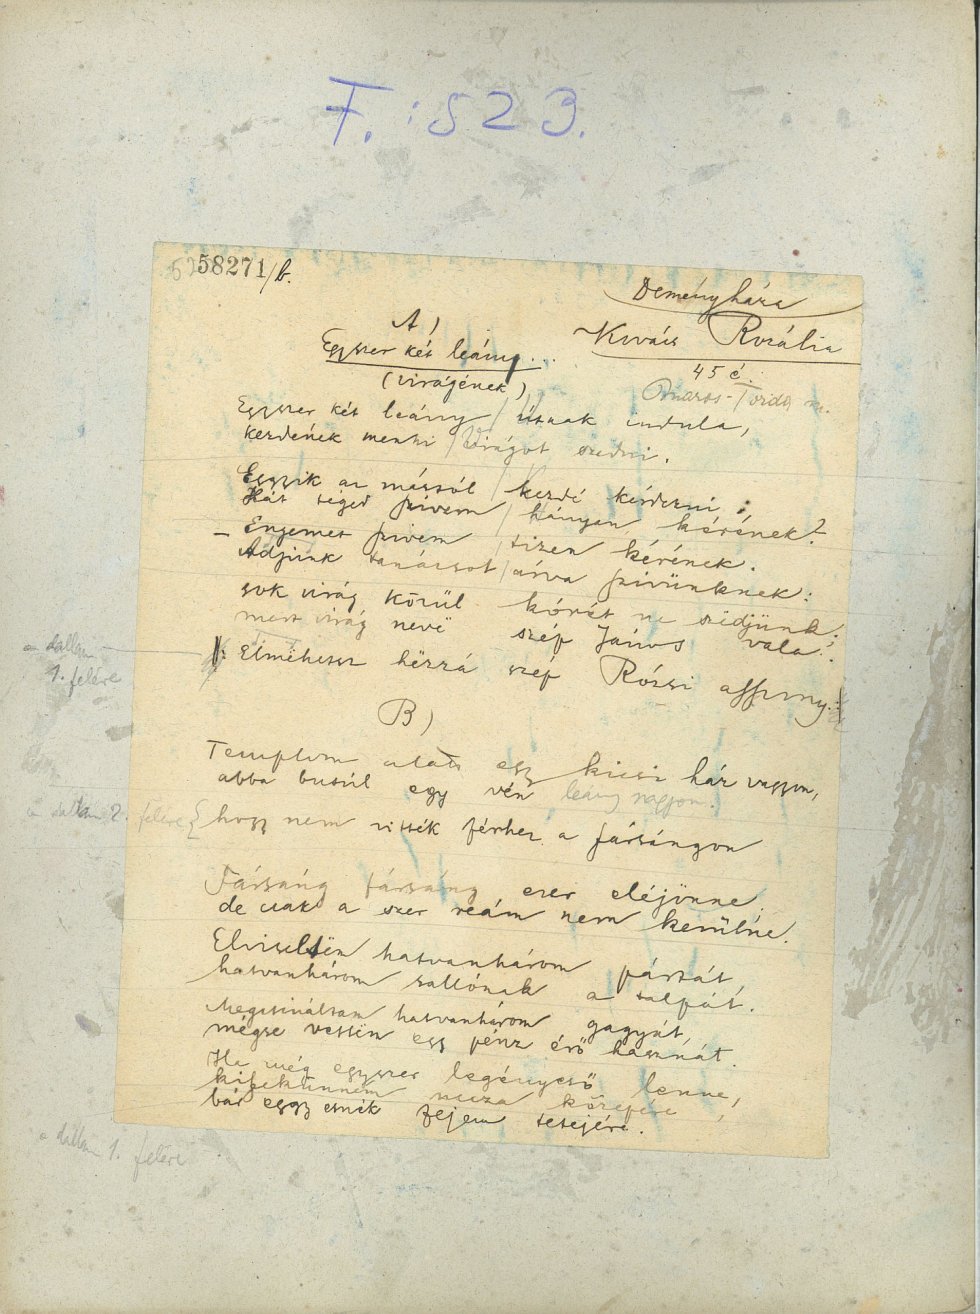 F. : 523.
58271/b.
Deményháza
Kovács Rozália
45 é.
Maros-Torda m.
A)
Egyszer két leány...
(virágének)
Egyszer két leány / útnak indula,
kezdének menni / virágot szedni.
Egyik az mástól / kezdé kérdezni:
Hát téged szivem / hányan kérének?
– Engemet szivem / tizen kérének.
Adjunk tanácsot / árva szívünknek:
sok virág közül kórót ne szedjünk:
mert virág nevü szép János vala:
Elmehetsz hëzzá szép Rózsi asszony.
a dallam
1. felére
B)
Templom alatt egy kicsi ház vagyon,
abba busúl egy vén leány nagyon.
a dallam 2. felére
hogy nem vitték férhez a fársángon
Fársáng fársáng ezer eléjönne
de csak a szer reám nem kerülne.
Elviseltëm hatvanhárom pártát,
hatvanhárom sallónak a talpát.
Megcsináltam hatvanhárom gagyját,
mégse vettem egy pénz érő hasznát.
Ha még egyszer legényeső lenne,
kifekünném ucca közepére,
bár eggy esnék fejem tetejére.
a dallam 1. felére